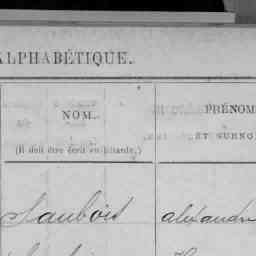 ALPHABÉTIQUE.
NOM.
(Il doit être écrit en bâtarde.)
PRÉNOM
ET SURNO
Saubois
alexandre